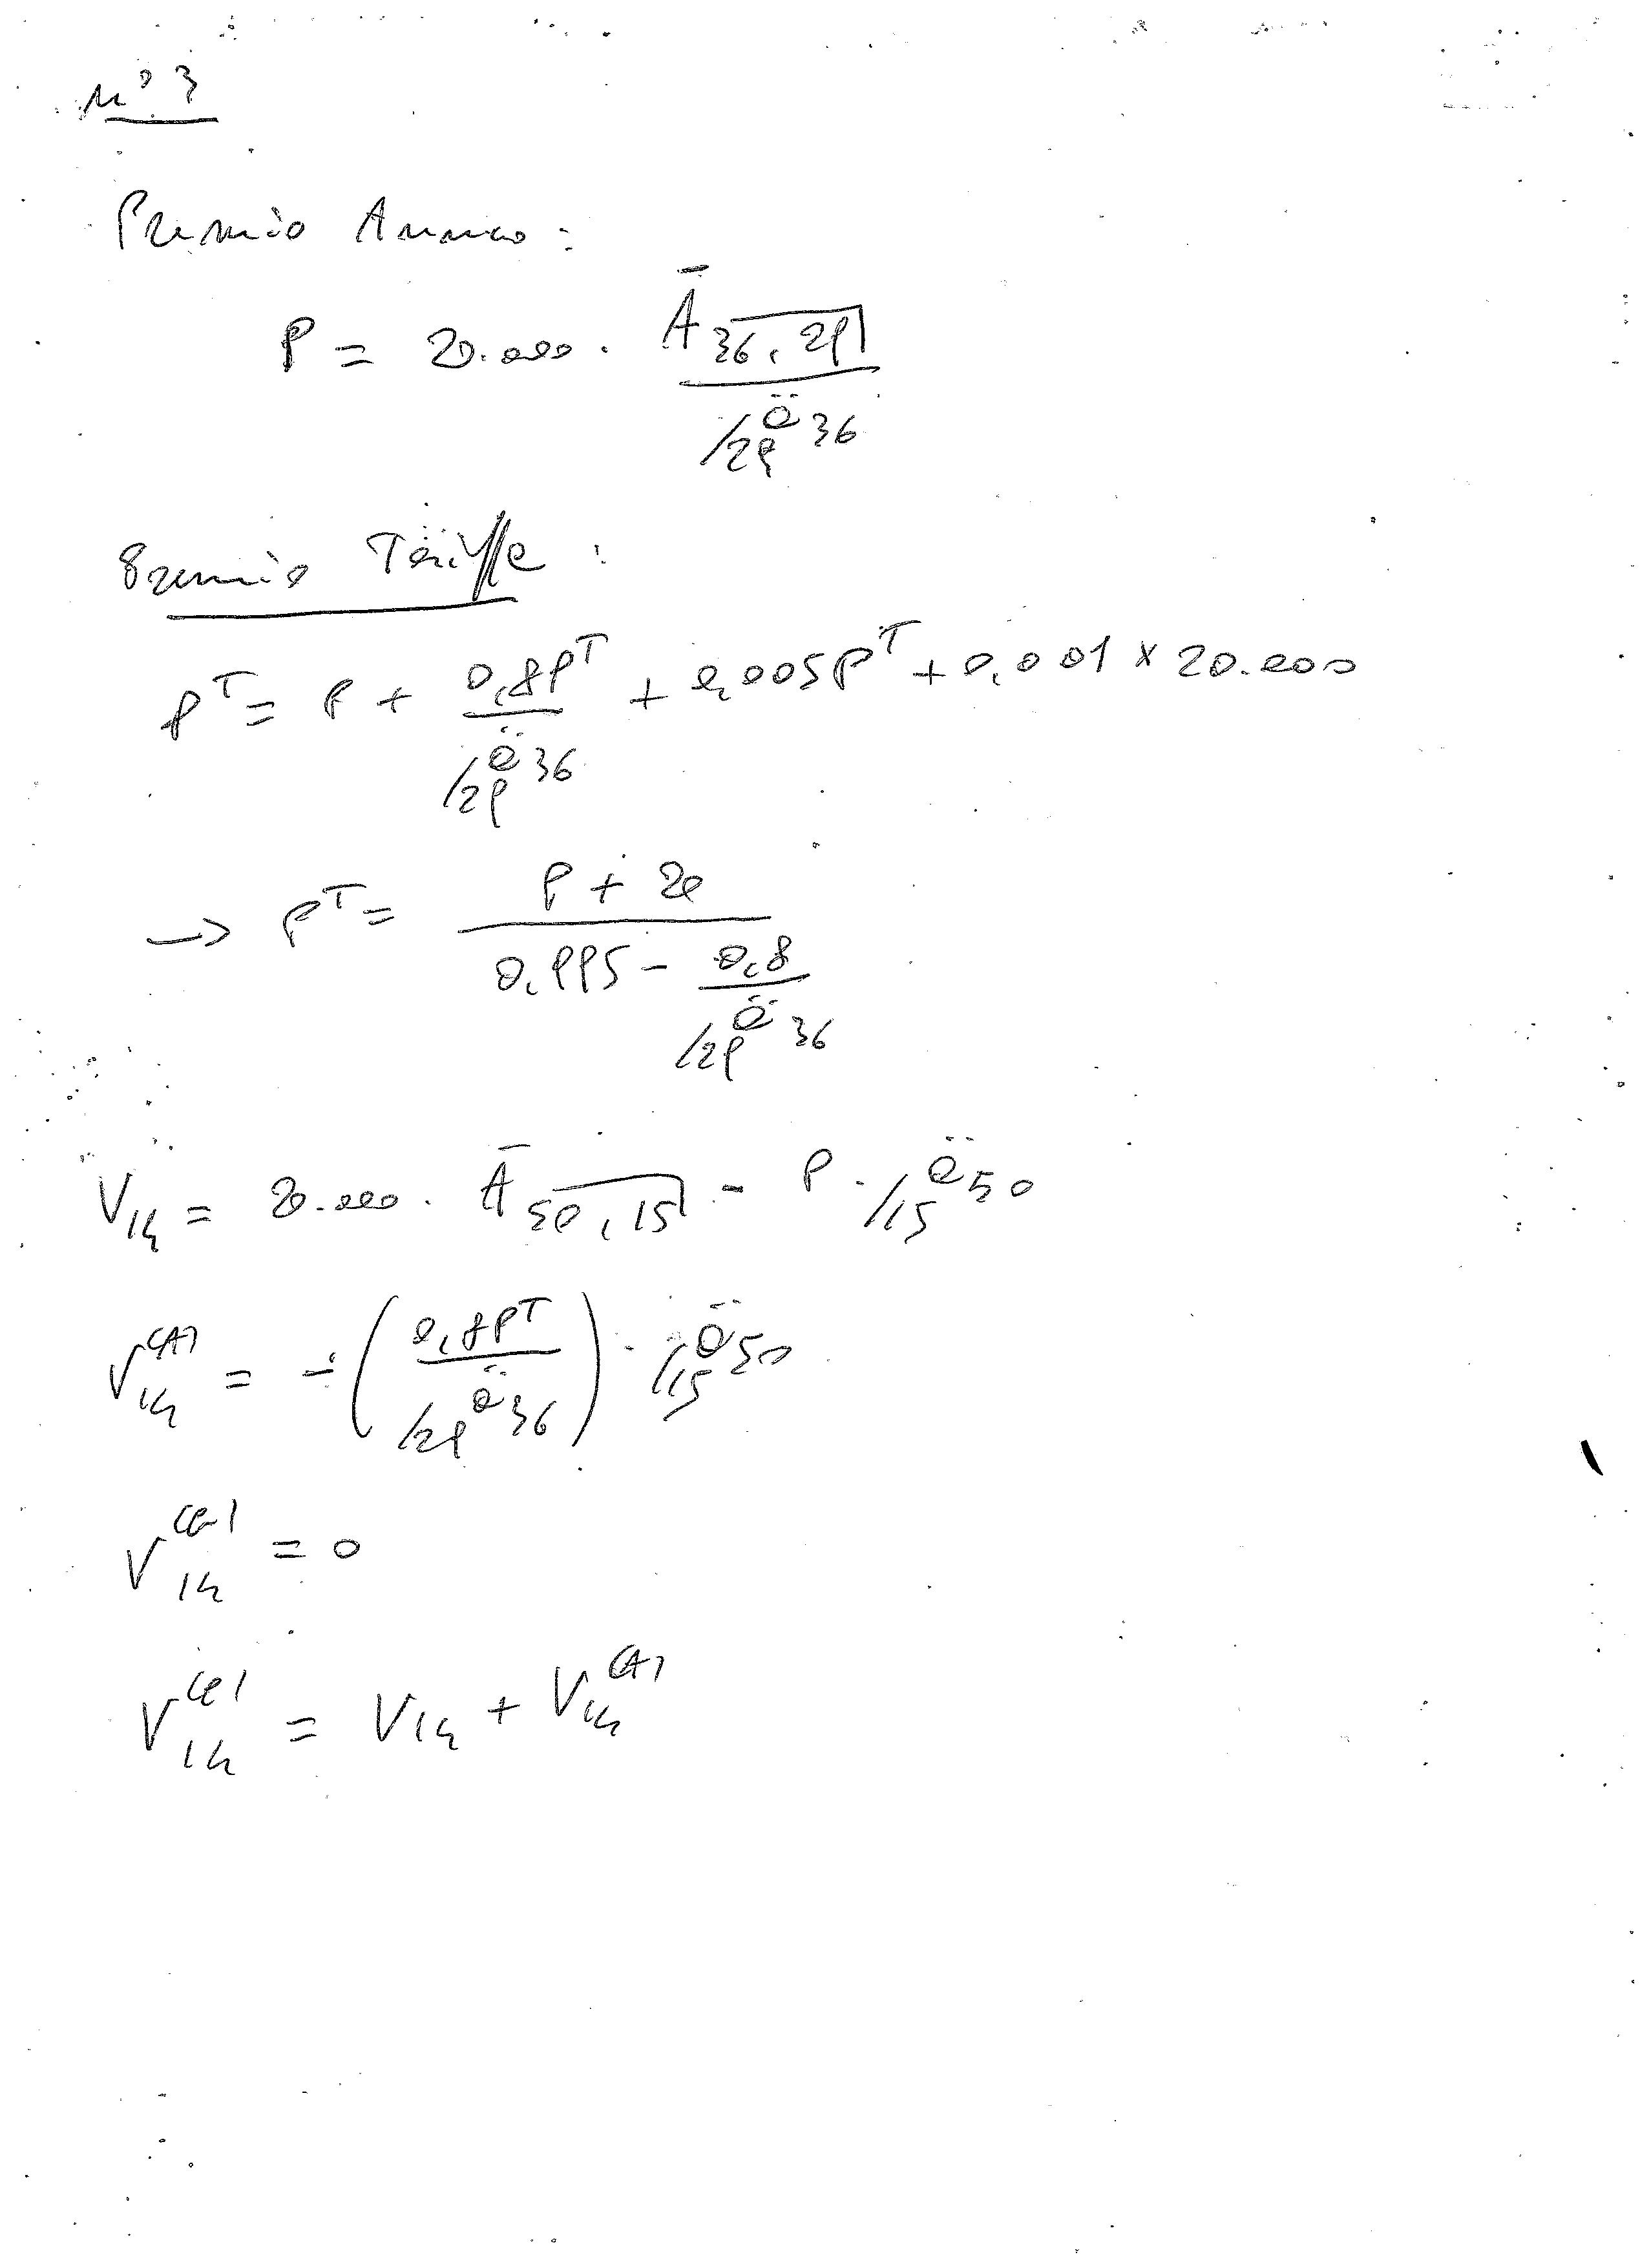 N° 3
Premio Annuo:
P = 20.000 · Ā 36,29⌉ / /29 ä 36
Premio Tariffa:
P^T = P + 0,8P^T / /29 ä 36 + 0,005P^T + 0,001 × 20.000
→ P^T = P + 20 / 0,995 - 0,8 / /29 ä 36
V14 = 20.000 · Ā 50,15⌉ - P · /15 ä 50
V14^(A) = - (0,8P^T / /29 ä 36) · /15 ä 50
V14^(G) = 0
V14^(C) = V14 + V14^(A)